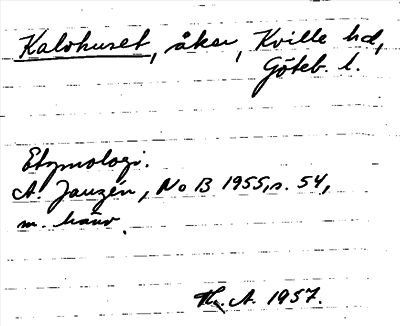 Kalvhuset, åker, Kville hd,
Göteb. l.
Etymologi.
A. Janzén, NoB 1955, s. 54,
m. hänv.
A. 1957.